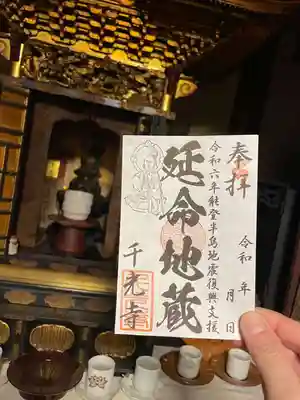 奉拝
令和 年 月 日
令和六年能登半島地震復興支援
延命地蔵
千光寺